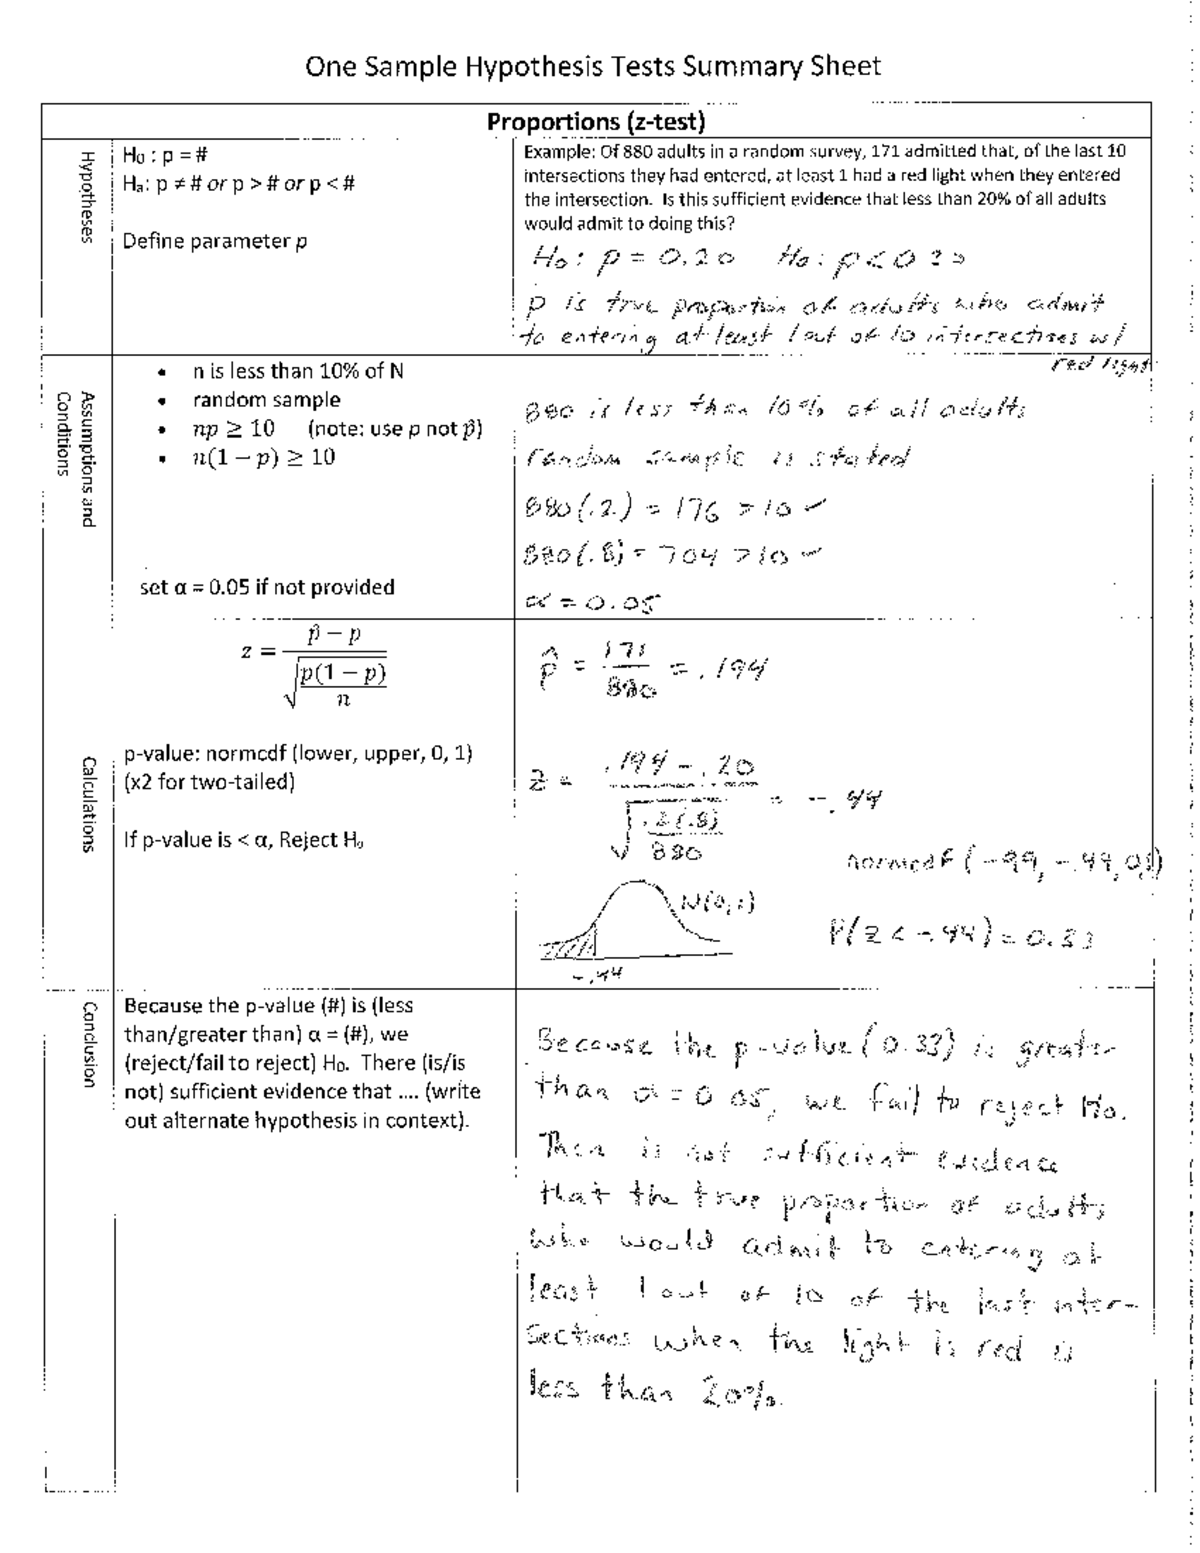 One Sample Hypothesis Tests Summary Sheet
Proportions (z-test)
Hypotheses
H₀ : p = #
Hₐ: p ≠ # or p > # or p < #
Define parameter p
Example: Of 880 adults in a random survey, 171 admitted that, of the last 10
intersections they had entered, at least 1 had a red light when they entered
the intersection. Is this sufficient evidence that less than 20% of all adults
would admit to doing this?
H₀ : p = 0.20 Ha : p < 0.20
p is true proportion of adults who admit
to entering at least 1 out of 10 intersections w/
red light
Assumptions and
Conditions
• n is less than 10% of N
• random sample
• np ≥ 10 (note: use p not p̂)
• n(1 − p) ≥ 10
set α = 0.05 if not provided
880 is less than 10% of all adults
random sample is stated
880(.2) = 176 > 10 ✓
880(.8) = 704 > 10 ✓
α = 0.05
Calculations
z = (p̂ − p) / √(p(1 − p) / n)
p-value: normcdf (lower, upper, 0, 1)
(x2 for two-tailed)
If p-value is < α, Reject H₀
p̂ = 171/880 = .194
z = (.194 − .20) / √(.2(.8) / 880) = −.44
normcdf (−99, −.44, 0,1)
N(0,1)
P(z < −.44) = 0.33
−.44
Conclusion
Because the p-value (#) is (less
than/greater than) α = (#), we
(reject/fail to reject) H₀. There (is/is
not) sufficient evidence that .... (write
out alternate hypothesis in context).
Because the p-value (0.33) is greater
than α = 0.05, we fail to reject H₀.
There is not sufficient evidence
that the true proportion of adults
who would admit to entering at
least 1 out of 10 of the last inter-
sections when the light is red is
less than 20%.